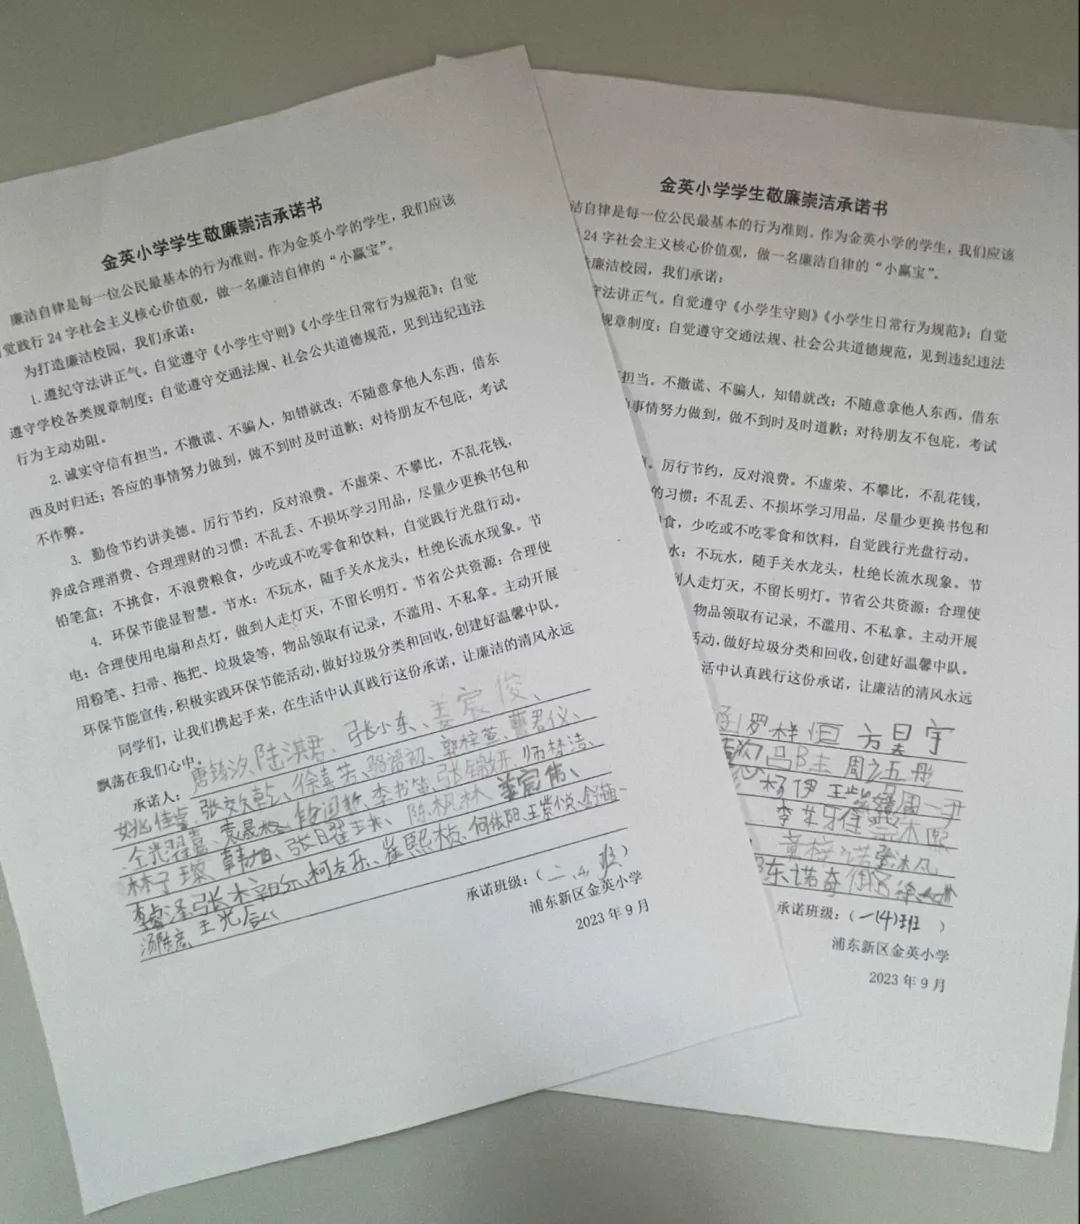 金英小学学生敬廉崇洁承诺书
廉洁自律是每一位公民最基本的行为准则。作为金英小学的学生，我们应该
觉践行24字社会主义核心价值观，做一名廉洁自律的“小赢宝”。
为打造廉洁校园，我们承诺：
1.遵纪守法讲正气。自觉遵守《小学生守则》《小学生日常行为规范》；自觉
遵守学校各类规章制度；自觉遵守交通法规、社会公共道德规范，见到违纪违法
行为主动劝阻。
2.诚实守信有担当。不撒谎、不骗人，知错就改；不随意拿他人东西，借东
西及时归还；答应的事情努力做到，做不到时及时道歉；对待朋友不包庇，考试
不作弊。
3. 勤俭节约讲美德。厉行节约，反对浪费。不虚荣、不攀比，不乱花钱，
养成合理消费、合理理财的习惯：不乱丢、不损坏学习用品，尽量少更换书包和
铅笔盒；不挑食，不浪费粮食，少吃或不吃零食和饮料，自觉践行光盘行动。
4. 环保节能显智慧。节水：不玩水，随手关水龙头，杜绝长流水现象。节
电：合理使用电扇和点灯，做到人走灯灭，不留长明灯。节省公共资源：合理使
用粉笔、扫帚、拖把、垃圾袋等，物品领取有记录，不滥用、不私拿。主动开展
环保节能宣传，积极实践环保节能活动，做好垃圾分类和回收，创建好温馨中队。
同学们，让我们携起手来，在生活中认真践行这份承诺，让廉洁的清风永远
飘荡在我们心中。
承诺人：唐 汐、陆淇君、张小东、姜宸俊、
姚佳 、张 乾、徐 芸、骆 初、郭 萱、曹君仪、
李书笛、张 开、师梦洁、
林子璨、韩 、张日曜、王 、陈枫林、姜宸 、
李睿泽、张 、柯友乐、崔熙桢、何依阳、王紫悦、
汤 、王光
承诺班级：（二、4班）
浦东新区金英小学
2023年9月
金英小学学生敬廉崇洁承诺书
洁自律是每一位公民最基本的行为准则。作为金英小学的学生，我们应该
24字社会主义核心价值观，做一名廉洁自律的“小赢宝”。
廉洁校园，我们承诺：
守法讲正气。自觉遵守《小学生守则》《小学生日常行为规范》；自觉
规章制度；自觉遵守交通法规、社会公共道德规范，见到违纪违法
担当。不撒谎、不骗人，知错就改；不随意拿他人东西，借东
事情努力做到，做不到时及时道歉；对待朋友不包庇，考试
。厉行节约，反对浪费。不虚荣、不攀比，不乱花钱，
的习惯：不乱丢、不损坏学习用品，尽量少更换书包和
食，少吃或不吃零食和饮料，自觉践行光盘行动。
水：不玩水，随手关水龙头，杜绝长流水现象。节
到人走灯灭，不留长明灯。节省公共资源：合理使
物品领取有记录，不滥用、不私拿。主动开展
活动，做好垃圾分类和回收，创建好温馨中队。
活中认真践行这份承诺，让廉洁的清风永远
罗梓恒 方昊宇
周之
杨伊 王 周一尹
黄梓诺
承诺班级：（一(4)班 ）
浦东新区金英小学
2023年9月